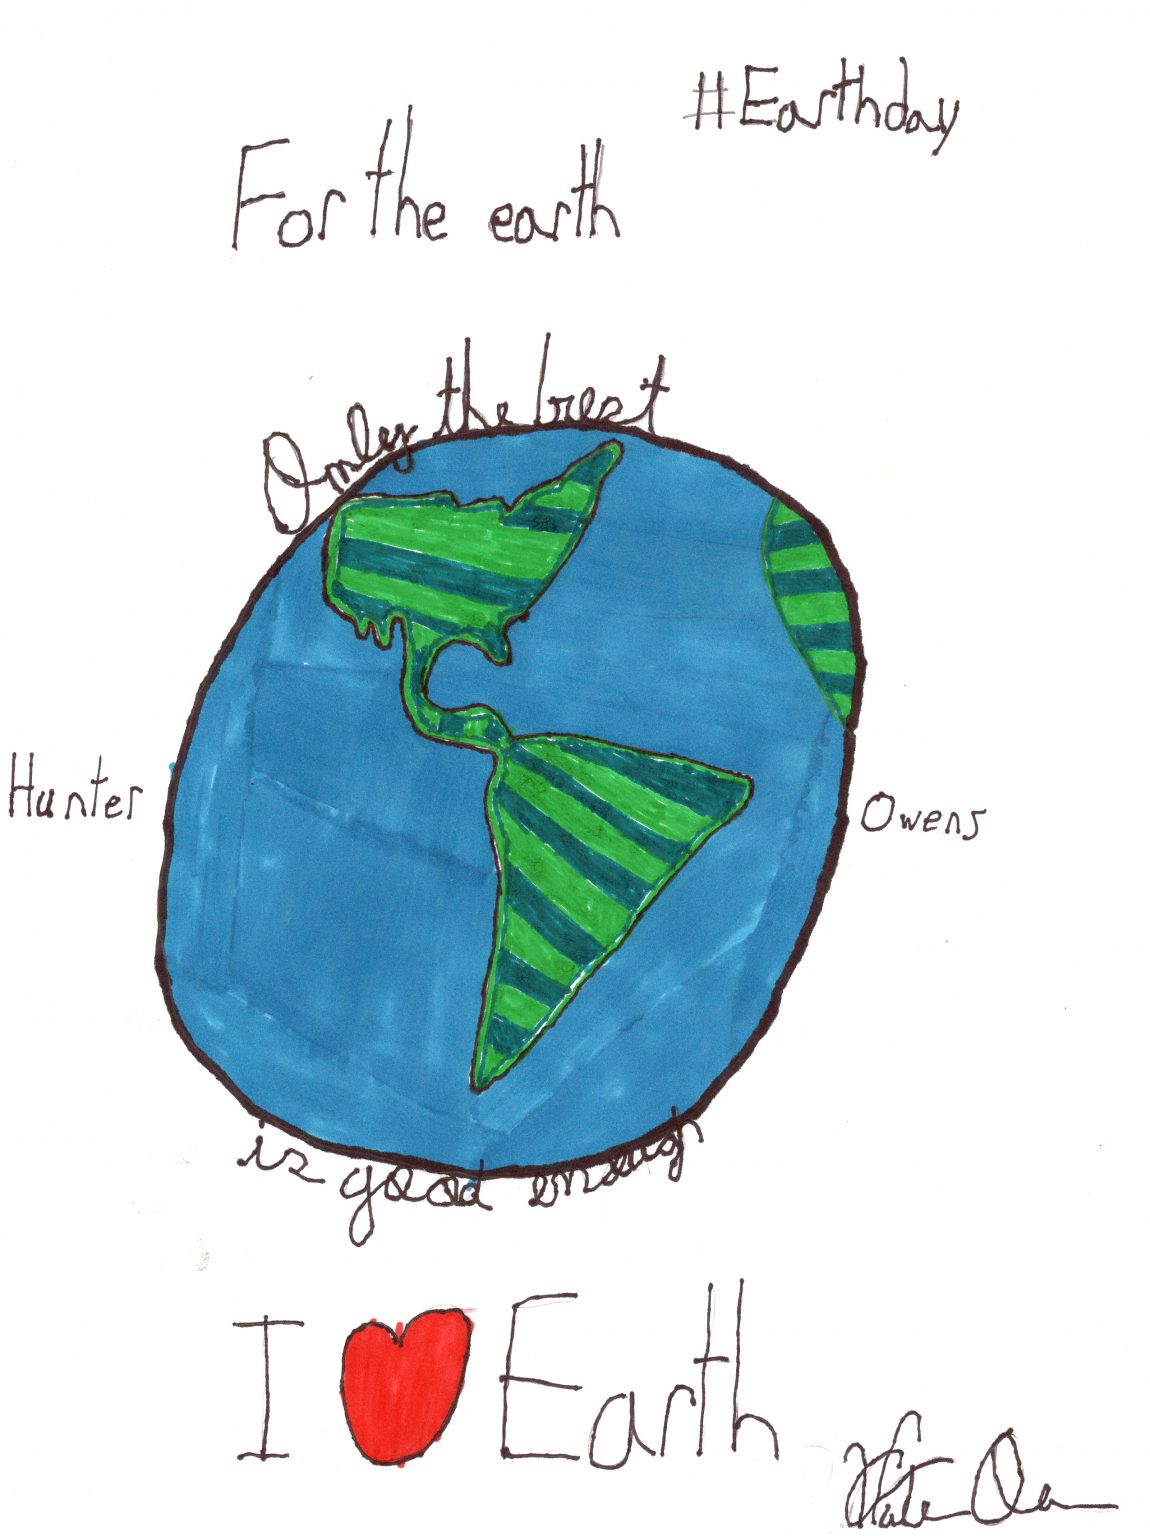 #Earthday
For the earth
Only the best
Hunter
Owens
is good enough
I Earth